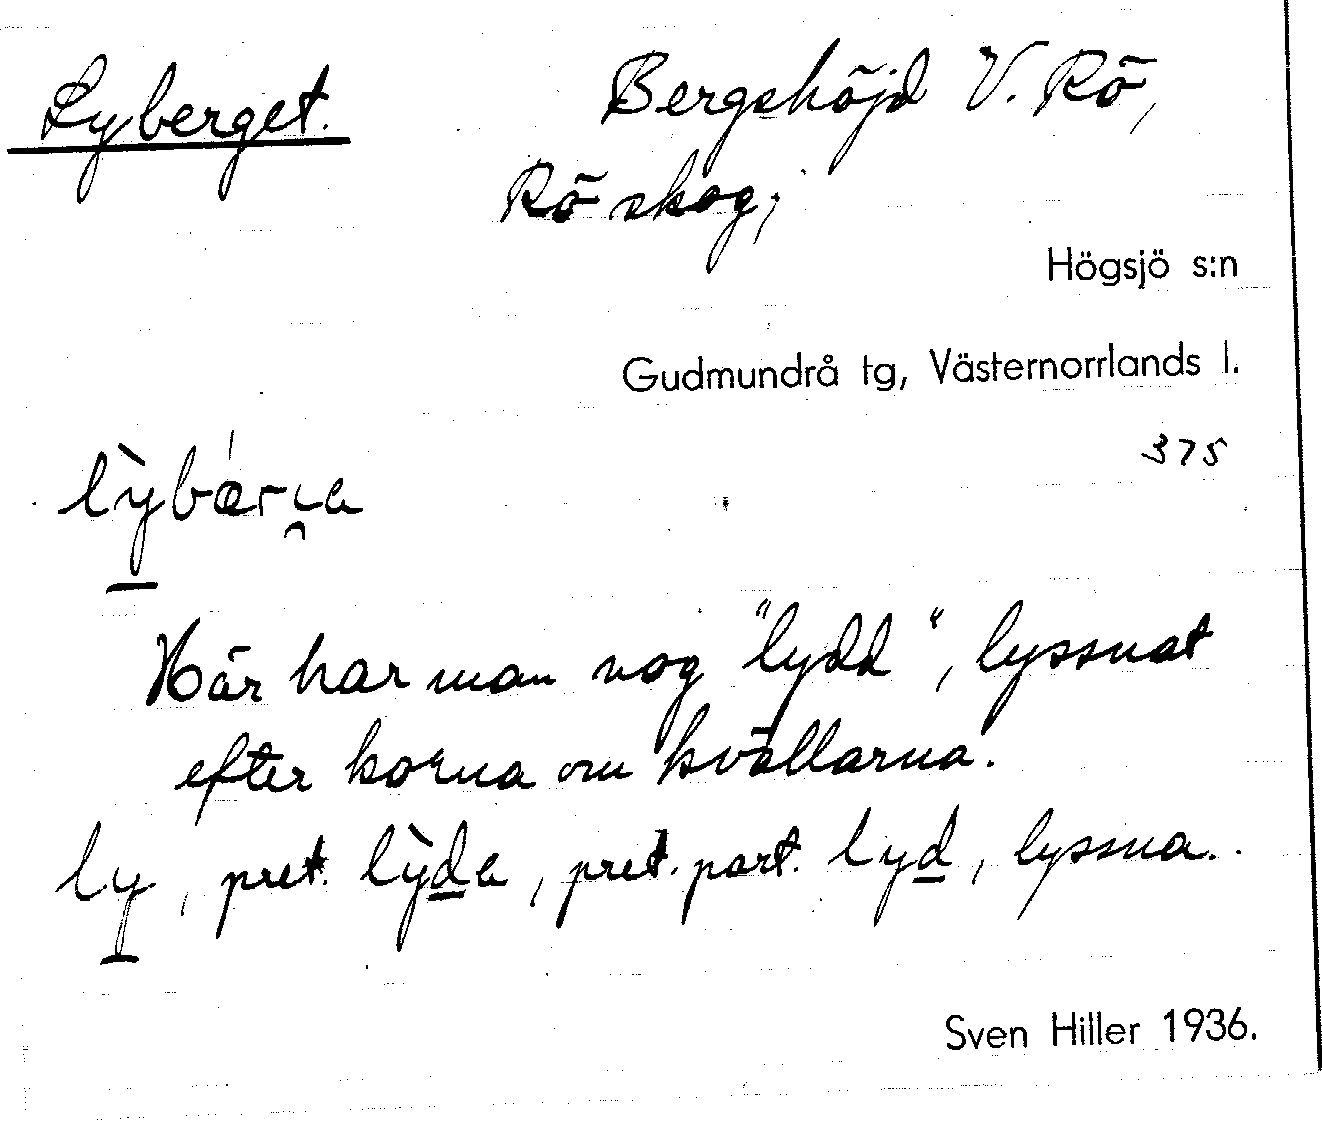 Lyberget. Bergshöjd V. Rö,
Rö skog;
Högsjö s:n
Gudmundrå tg, Västernorrlands l.
375
Här har man nog "lydd", lyssnat
efter korna om kvällarna.
ly, pret. lỳda, pret. part. lyd, lyssna.
Sven Hiller 1936.